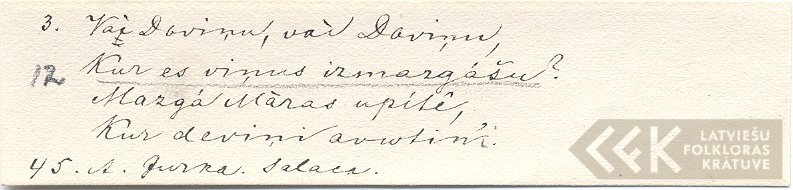 3. Vai Doviņu, vai Doviņu,
12 Kur es viņus izmazgášu?
Mazgá Māras upítê,
Kur deviņi avutiņ'i.
45. A. Jurka. Salaca.
LATVIEŠU
FOLKLORAS
KRĀTUVE